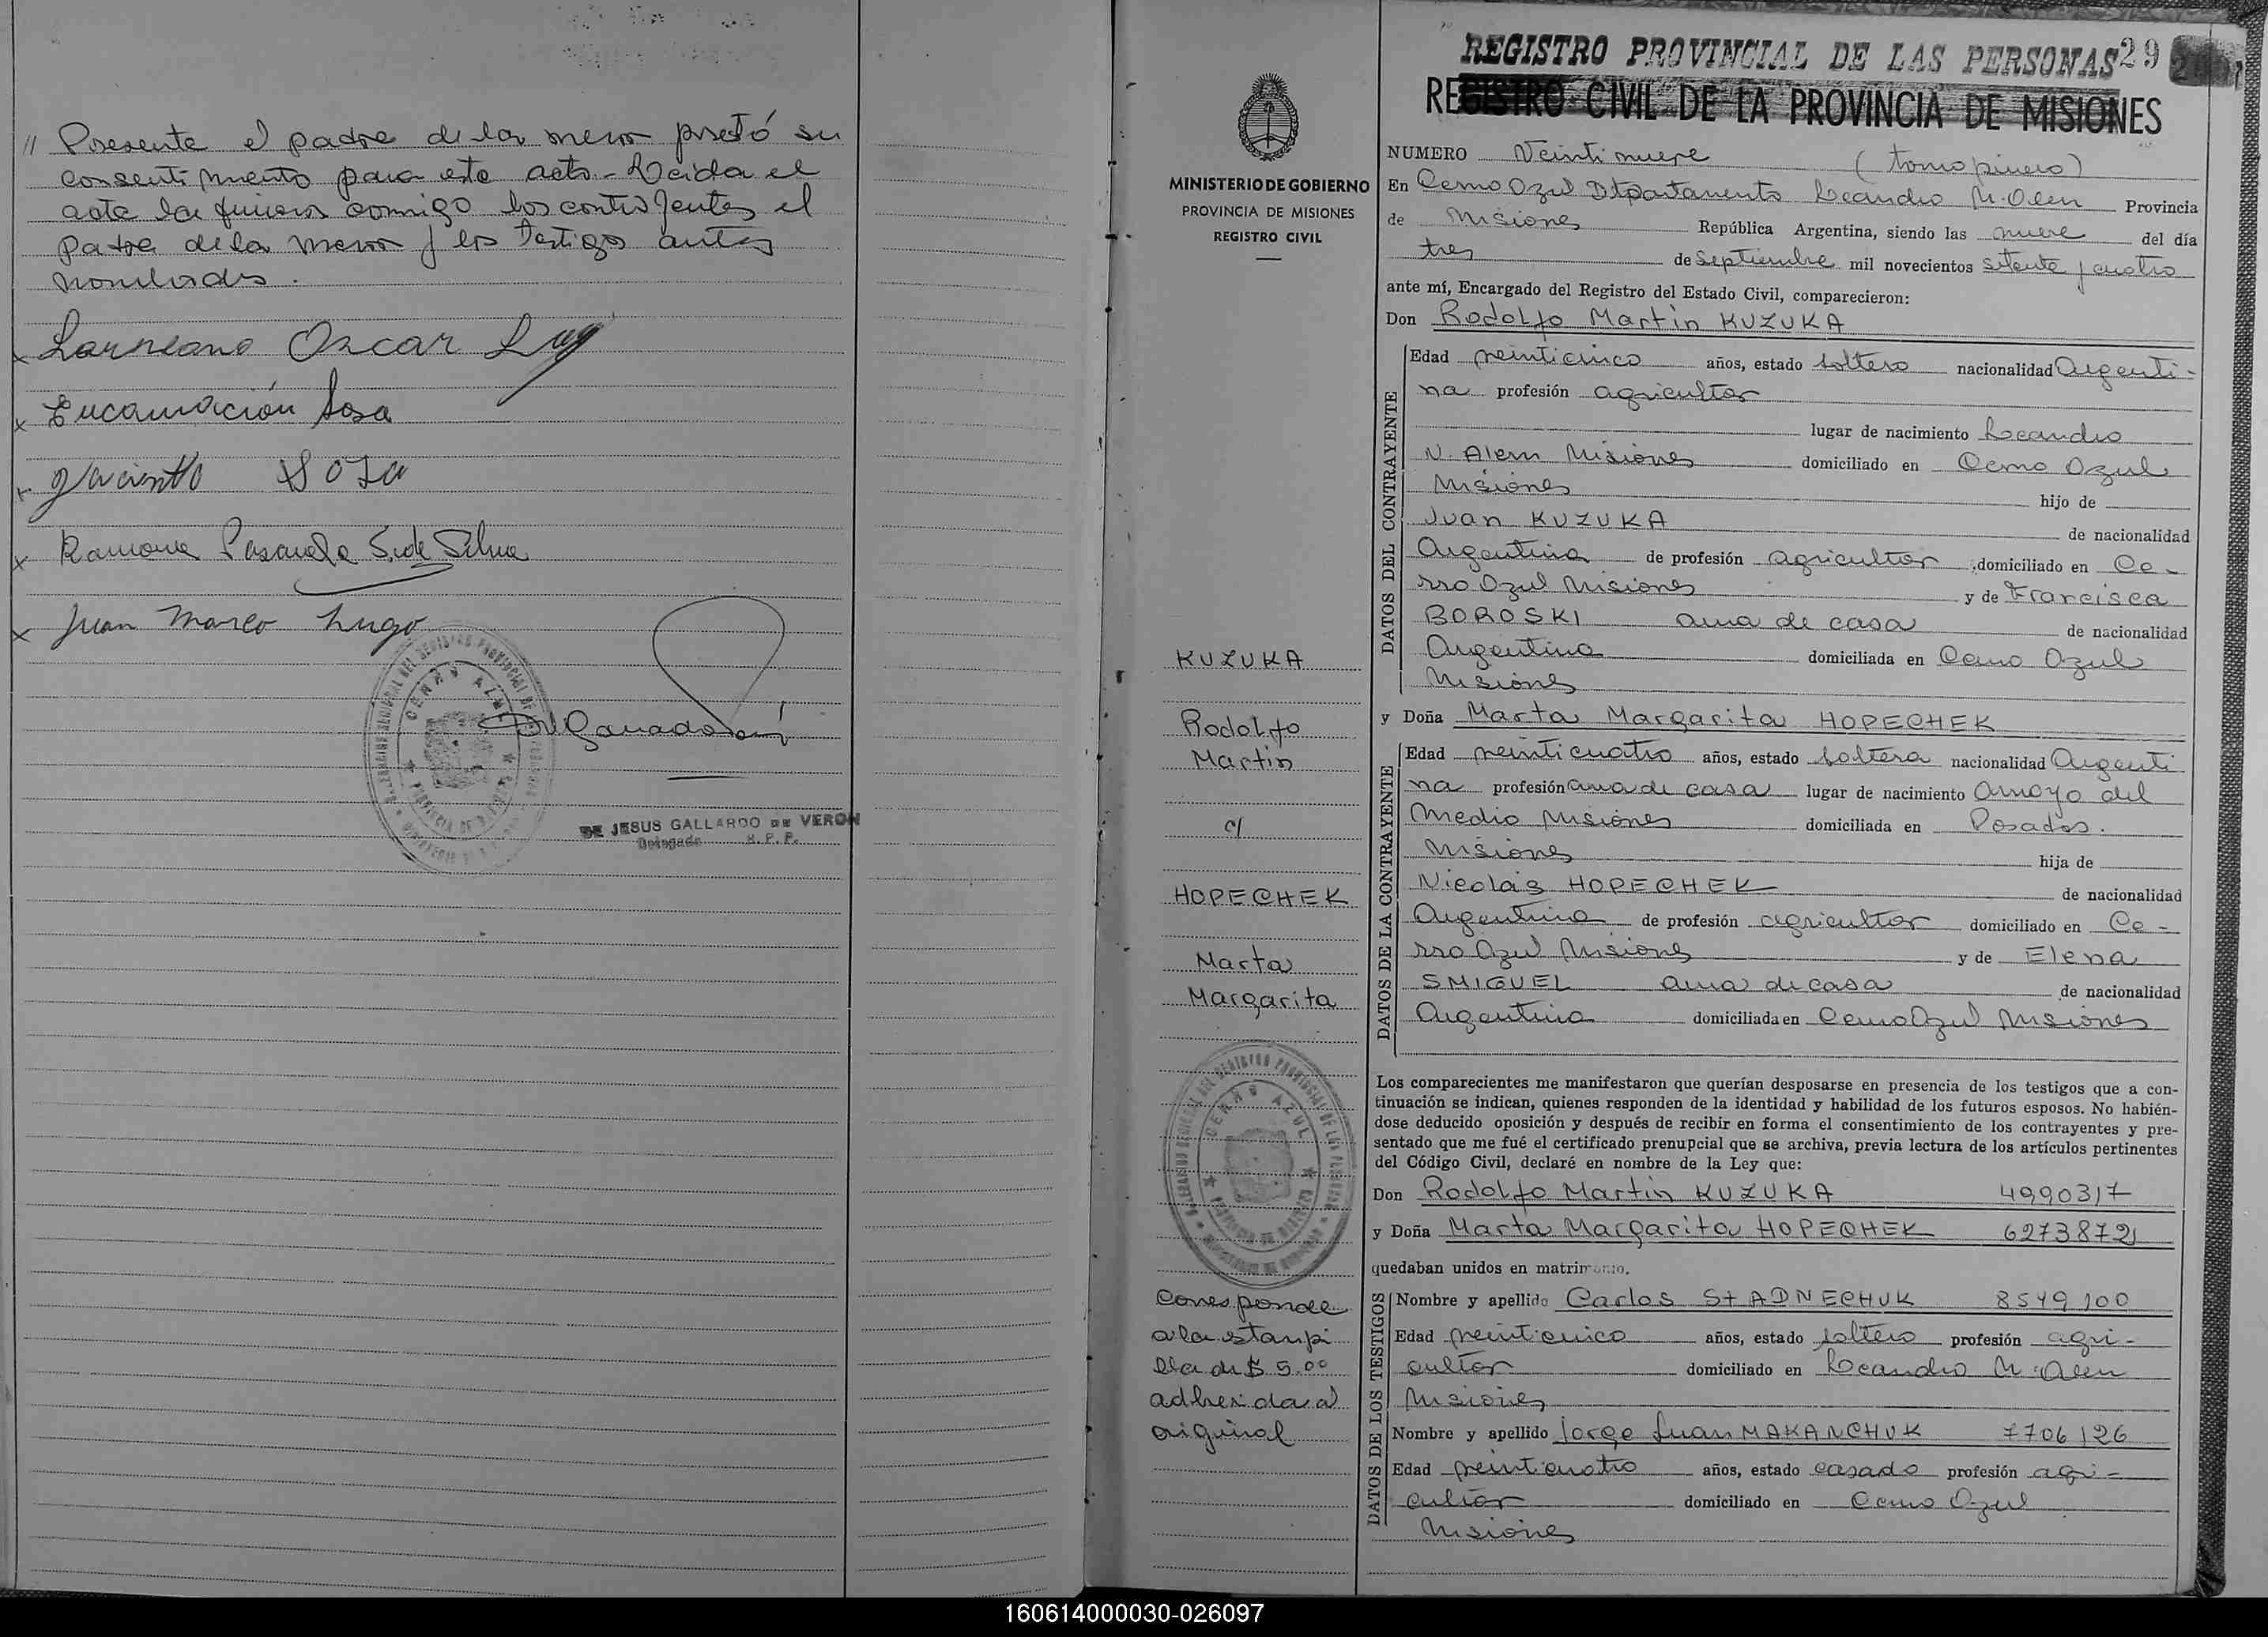 // Presente el padre de la menor prestó su
consentimiento para este acto - Leida el
acta la firman conmigo los contrayentes el
padre de la menor y los testigos antes
nombrados.
Laureano Oscar Lugo
Encarnación Sosa
Jacinto Sosa
Ramona Pascuala S. de Silva
Juan Marco Lugo
CERRO AZUL
DE JESUS GALLARDO DE VERON
Delegada R.P.P.
MINISTERIO DE GOBIERNO
PROVINCIA DE MISIONES
REGISTRO CIVIL
KUZUKA
Rodolfo
Martin
c/
HOPECHEK
Marta
Margarita
CERRO AZUL
Corresponde
a la estampi
lla de $ 5.00
adherida al
original
REGISTRO PROVINCIAL DE LAS PERSONAS 29
REGISTRO CIVIL DE LA PROVINCIA DE MISIONES
NUMERO Veintinueve (tomo primero)
En Cerro Azul Dtpartamento Leandro N. Alem Provincia
de Misiones República Argentina, siendo las nueve del día
tres de Septiembre mil novecientos setenta y cuatro
ante mí, Encargado del Registro del Estado Civil, comparecieron:
Don Rodolfo Martin KUZUKA
DATOS DEL CONTRAYENTE
Edad veinticinco años, estado soltero nacionalidad Argenti-
na profesión agricultor
lugar de nacimiento Leandro
N. Alem Misiones domiciliado en Cerro Azul
Misiones hijo de
Juan KUZUKA de nacionalidad
Argentina de profesión agricultor domiciliado en Ce-
rro Azul Misiones y de Francisca
BOROSKI ama de casa de nacionalidad
Argentina domiciliada en Cerro Azul
Misiones
y Doña Marta Margarita HOPECHEK
DATOS DE LA CONTRAYENTE
Edad veinticuatro años, estado soltera nacionalidad Argenti
na profesión ama de casa lugar de nacimiento Arroyo del
Medio Misiones domiciliada en Posadas.
Misiones hija de
Nicolás HOPECHEK de nacionalidad
Argentina de profesión agricultor domiciliado en Ce-
rro Azul Misiones y de Elena
SMIGUEL ama de casa de nacionalidad
Argentina domiciliada en Cerro Azul Misiones
Los comparecientes me manifestaron que querían desposarse en presencia de los testigos que a con-
tinuación se indican, quienes responden de la identidad y habilidad de los futuros esposos. No habién-
dose deducido oposición y después de recibir en forma el consentimiento de los contrayentes y pre-
sentado que me fué el certificado prenupcial que se archiva, previa lectura de los artículos pertinentes
del Código Civil, declaré en nombre de la Ley que:
Don Rodolfo Martin KUZUKA 4990317
y Doña Marta Margarita HOPECHEK 6273872
quedaban unidos en matrimonio.
DATOS DE LOS TESTIGOS
Nombre y apellido Carlos STADNECHUK 8549100
Edad veinticinco años, estado soltero profesión agri-
cultor domiciliado en Leandro N. Alem
Misiones
Nombre y apellido Jorge Juan MAKANCHUK 7706126
Edad veinticuatro años, estado casado profesión agri-
cultor domiciliado en Cerro Azul
Misiones
160614000030-026097